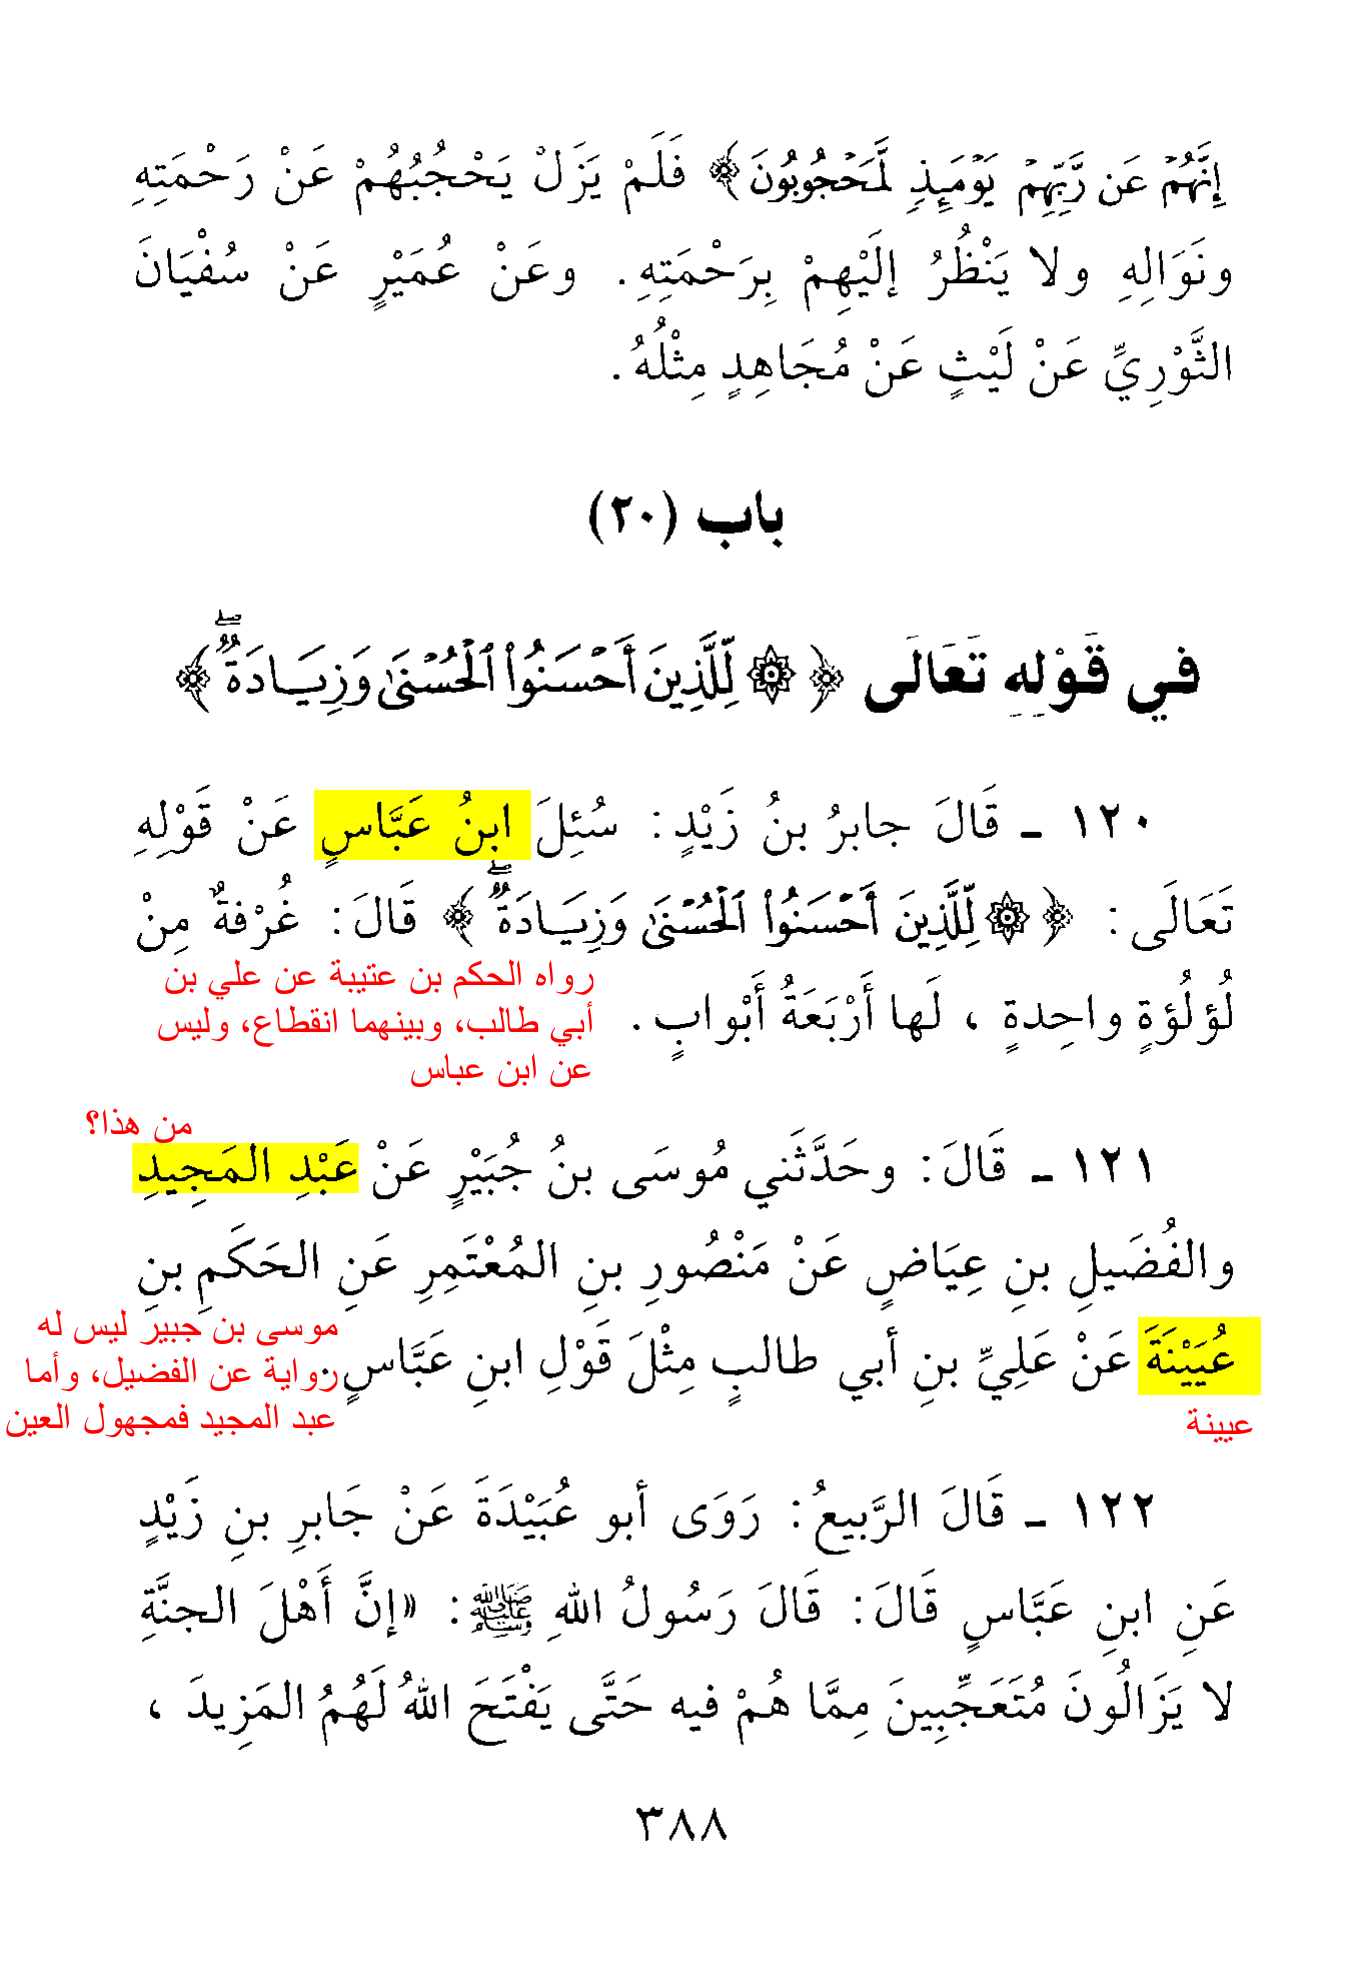 إِنَّهُمْ عَن رَّبِّهِمْ يَوْمَئِذٍ لَّمَحْجُوبُونَ﴾ فَلَمْ يَزَلْ يَحْجُبُهُمْ عَنْ رَحْمَتِهِ
ونَوَالِهِ ولا يَنْظُرُ إلَيْهِمْ بِرَحْمَتِهِ. وعَنْ عُمَيْرٍ عَنْ سُفْيَانَ
الثَّوْرِيِّ عَنْ لَيْثٍ عَنْ مُجَاهِدٍ مِثْلُهُ.
باب (٢٠)
في قَوْلِهِ تَعَالَى ﴿ ۞ لِّلَّذِينَ أَحْسَنُوا۟ ٱلْحُسْنَىٰ وَزِيَادَةٌۖ ﴾
١٢٠ ـ قَالَ جابرُ بنُ زَيْدٍ: سُئِلَ ابنُ عَبَّاسٍ عَنْ قَوْلِهِ
تَعَالَى: ﴿ ۞ لِّلَّذِينَ أَحْسَنُوا۟ ٱلْحُسْنَىٰ وَزِيَادَةٌۖ ﴾ قَالَ: غُرْفةٌ مِنْ
لُؤلُؤةٍ واحِدةٍ ، لَها أَرْبَعَةُ أَبْوابٍ.
رواه الحكم بن عتيبة عن علي بن
أبي طالب، وبينهما انقطاع، وليس
عن ابن عباس
من هذا؟
١٢١ ـ قَالَ: وحَدَّثَني مُوسَى بنُ جُبَيْرٍ عَنْ عَبْدِ المَجِيدِ
والفُضَيلِ بنِ عِيَاضٍ عَنْ مَنْصُورِ بنِ المُعْتَمِرِ عَنِ الحَكَمِ بنِ
عُيَيْنَةَ عَنْ عَلِيِّ بنِ أبي طالبٍ مِثْلَ قَوْلِ ابنِ عَبَّاسٍ.
موسى بن جبير ليس له
رواية عن الفضيل، وأما
عبد المجيد فمجهول العين
عيينة
١٢٢ ـ قَالَ الرَّبيعُ: رَوَى أبو عُبَيْدَةَ عَنْ جَابرِ بنِ زَيْدٍ
عَنِ ابنِ عَبَّاسٍ قَالَ: قَالَ رَسُولُ اللهِ ﷺ: «إنَّ أَهْلَ الجنَّةِ
لا يَزَالُونَ مُتَعَجِّبِينَ مِمَّا هُمْ فيه حَتَّى يَفْتَحَ اللهُ لَهُمُ المَزِيدَ ،
٣٨٨